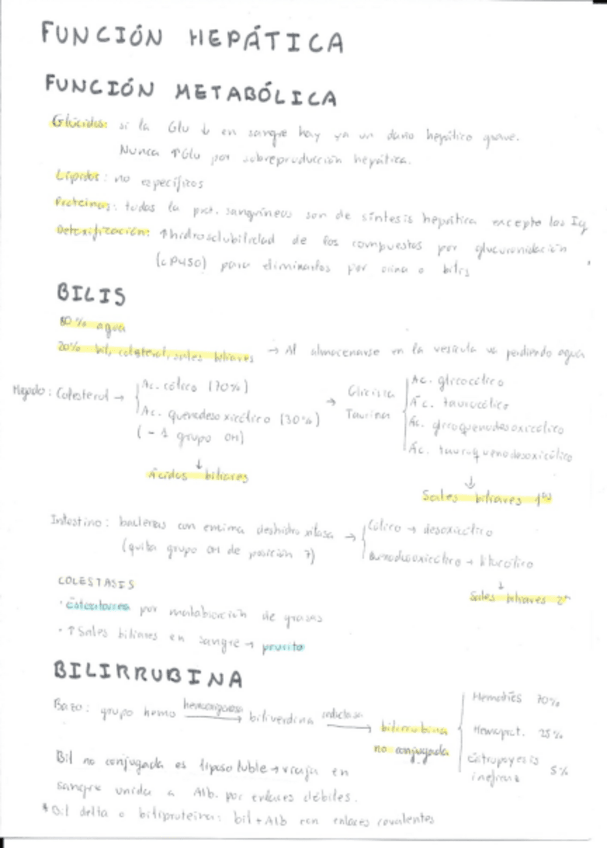 FUNCIÓN HEPÁTICA
FUNCIÓN METABÓLICA
Glúcidos: si la Glu ↓ en sangre hay ya un daño hepático grave.
Nunca ↑Glu por sobreproducción hepática.
Lípidos: no específicos
Proteínas: todas la prot. sanguíneas son de síntesis hepática excepto las Ig
Detoxificación: ↑hidrosolubilidad de los compuestos por glucuronidación
(CP450) para eliminarlos por orina o bilis
BILIS
80% agua
20% bil, colesterol, sales biliares → Al almacenarse en la vesícula va perdiendo agua
Hígado: Colesterol →
Ac. cólico (70%)
Ac. quenodesoxicólico (30%)
(-1 grupo OH)
↓
Ácidos biliares
→ Glicina
Taurina
Ac. glicocólico
Ac. taurocólico
Ac. glicoquenodesoxicólico
Ac. tauroquenodesoxicólico
↓
Sales biliares 1as
Intestino: bacterias con enzima deshidroxilasa →
(quita grupo OH de posición 7)
Cólico → desoxicólico
Quenodesoxicólico → litocólico
↓
Sales biliares 2as
COLESTASIS
· Esteatorrea por malabsorción de grasas
· ↑Sales biliares en sangre → prurito
BILIRRUBINA
Bazo: grupo hemo → biliverdina reductasa → bilirrubina
no conjugada
Hematíes 70%
Hemoprot. 25%
Eritropoyesis
ineficaz 5%
Bil no conjugada es liposoluble → viaja en
sangre unida a Alb. por enlaces débiles.
* Bil delta o biliproteína: bil + Alb con enlaces covalentes